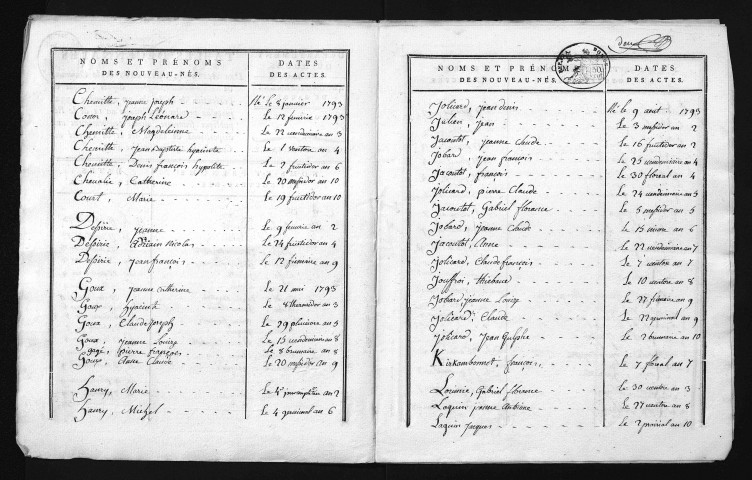 NOMS ET PRÉNOMS
DES NOUVEAU-NÉS.
DATES
DES ACTES.
Chenitte, jeanne joseph Né le 8 janvier 1793
Cour, joseph Léonard le 12 fevrier 1793
Chenitte, Magdeleinne Le 22 vendemiaire an 3
Chenitte, jean baptiste hyacinte Le 1 ventose an 4
Chenitte, Denis françois hypolite Le 2 fructidor an 6
Chevalié, Catherine Le 20 messidor an 10
Court, Marie Le 19 fructidor an 10
Desirié, jeanne Le 9 fevrie an 2
Desirié, Adriain Nicolas Le 24 fructidor an 4
Desirié, jean françois Le 12 frimaire an 9
Goux, jeanne catherine Le 21 mai 1793
Goux, hyacinte Le 8 thermidor an 3
Goux, Claude joseph Le 29 pluviose an 5
Goux, jeanne Louise Le 15 vendemiaire an 8
goux, pierre françois Le 8 brumaire an 8
Goux, Anne Claude Le 20 messidor an 9
haury, Marie
haury, Michel Le 4 germinal an 6
NOMS ET PRÉNOMS
DES NOUVEAU-NÉS.
DATES
DES ACTES.
Joliard, jean denis Né le 9 aout 1793
Julien, jean Le 3 messidor an 2
Jacoutot, jeanne Claude Le 16 fructidor an 2
Jobard, jean françois Le 25 vendemiaire an 4
Jacoutot, françois Le 30 floreal an 4
Joliard, pierre Claude Le 24 vendemiaire an 5
Jacoutot, Gabriel florance Le 5 messidor an 5
Jobard, jeanne Claude Le 15 nivose an 6
Jacoutot, Anne Le 22 vendemiaire an 7
Joliard, Claude françois Le 7 ventose an 7
Jouffroi, thiebaud Le 10 ventose an 8
Jobard jeanne Louise Le 27 frimaire an 9
Joliard, Claude Le 22 germinal an 9
joliard, jean Le 2 brumaire an 10
Kirkambonnet, françois, Le 7 floreal an 7
Gabriel florence Le 30 ventose an 3
Laquin Le 27 ventose an 8
Laquin jacques Le 2 prairial an 10